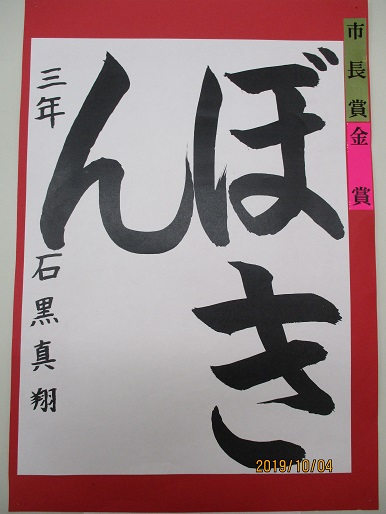 市長賞
金賞
ぼき
ん
三年 石黒真翔
2019/10/04